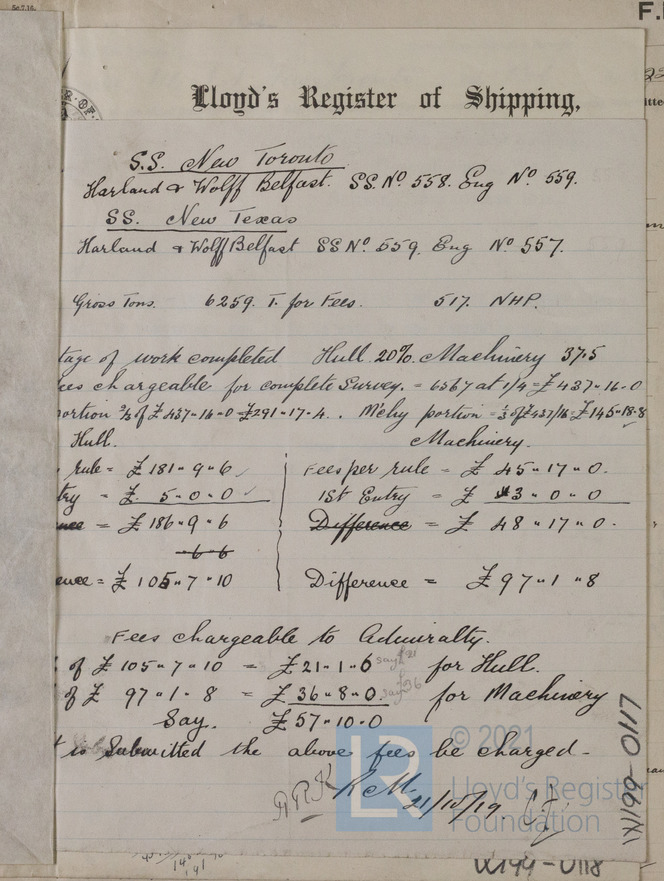 Lloyd's Register of Shipping,
S.S. New Toronto
Harland & Wolff Belfast. SS. No 558. Eng No 559.
SS. New Texas
Harland & Wolff Belfast SS No. 559. Eng No 557.
Gross Tons. 6259. T. for Fees. 517. NHP.
tage of work completed Hull 20%. Machinery 37.5
ees chargeable for complete Survey. = 6567 at 1/4 = £437-16-0
portion ⅔ of £437-16-0 = £291-17-4. M'chy portion = ⅓ of £437/16 = £145-18-8
Hull. Machinery.
rule = £181-9-6 Fees per rule = £45-17-0.
try = £5-0-0 1st Entry = £3-0-0
nce = £186-9-6 Difference = £48-17-0.
6-6
ence = £105-7-10 Difference = £97-1-8
Fees chargeable to Admiralty.
of £105-7-10 = £21-1-6 say £21 for Hull.
of £97-1-8 = £36-8-0 say £36 for Machinery
Say. £57-10-0
t is Submitted the above fees be charged-
RCM 21/10/19
© 2021
Lloyd's Register
Foundation
W199-0117
W199-0118